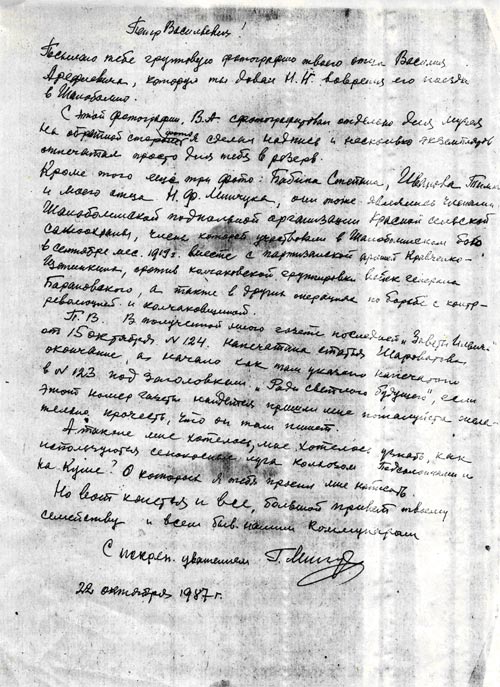 Петр Васильевич!
Посылаю тебе групповую фотографию твоего отца Василия
Арефиевича, которую ты давал Н.Н. вовремя его поезда
в Шалоболино.
С этой фотографии, В.А сфотографирован отдельно для музея
На обратной стороне фото я сделал надпись и несколько экземпляров
отпечатал просто для тебя в резерв.
Кроме того еще три фото: Бабина Степана, Иванова
и моего отца Н.Ф. Мингука, они тоже являлись членами
Шалоболинской подпольной организации Красной сельской
самоохраны, члены которой участвовали в Шалоболинском бою
в сентябре мес. 1919 г. вместе с партизанской армией Кравченко-
Щетинкина, против колчаковской группировки войск генерала
Барановского, а также в других операциях по борьбе с контр-
революцией и колчаковщиной.
П.В. В полученной мною газете последней "Завет. Ильича"
от 15 октября N 124. Напечатана статья Шароватова
окончание, а начало как там указано напечатано
в N 123 под заголовком "Ради светлого будущего", если
этот номер газеты найдется пришли мне пожалуйста жела-
тельно прочесть, что он там пишет.
А также мне хотелось, мне хотелось узнать, как
используются сенокосные луга колхозом и
на Куше? О которых я тебя просил мне написать.
Но вот кажется и все, большой привет твоему
семейству и всем бывшим нашим Коммунарам
С искрен. уважением Г. Минг
22 октября 1987 г.